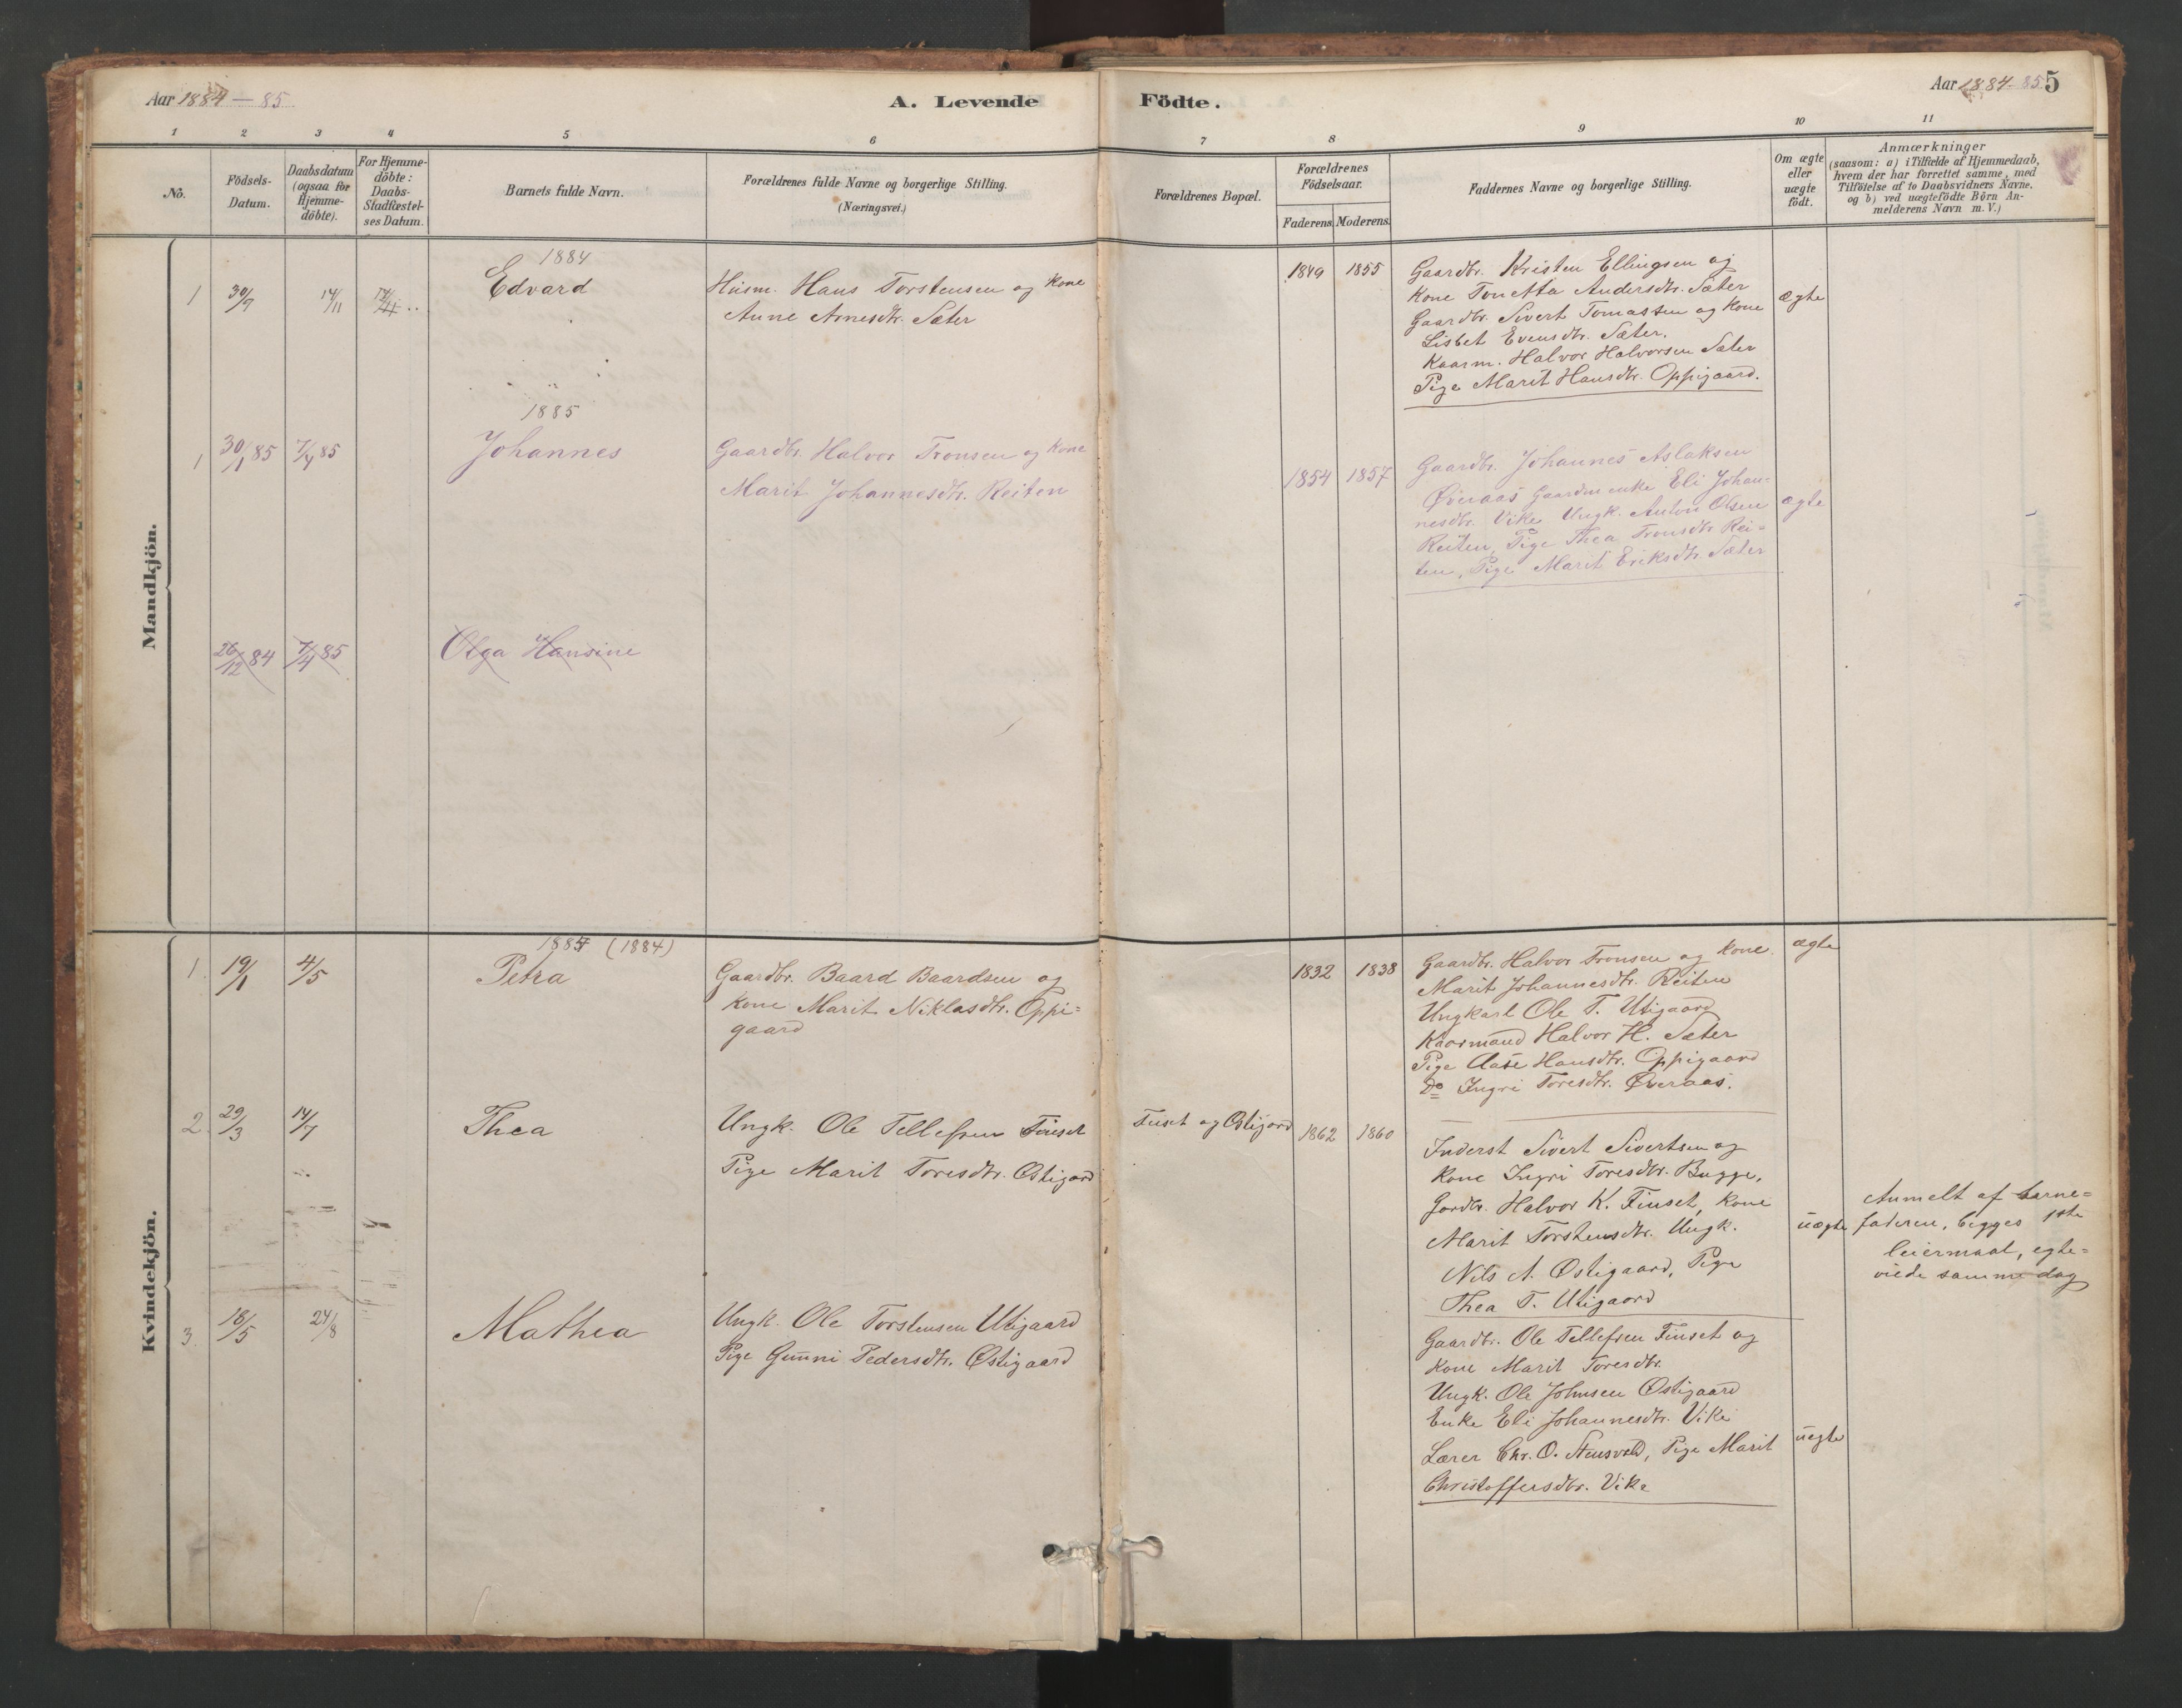 Aar 1884 — 85
A. Levende
Födte.
Aar 1884-85
5
1
2
3
4
5
6
7
8
9
10
11
No.
Födsels-
Datum.
Daabsdatum
(ogsaa for
Hjemme-
döbte).
For Hjemme-
döbte:
Daabs-
Stadfæstel-
ses Datum.
Barnets fulde Navn.
Forældrenes fulde Navne og borgerlige Stilling.
(Næringsvei.)
Forældrenes Bopæl.
Forældrenes
Födselsaar.
Faderens.
Moderens.
Faddernes Navne og borgerlige Stilling.
Om ægte
eller
uægte
födt.
Anmærkninger
(saasom: a) i Tilfælde af Hjemmedaab,
hvem der har forrettet samme, med
Tilföielse af to Daabsvidners Navne.
og b) ved uægtefödte Börn An-
melderens Navn m. V.)
Mandkjön.
1884
1 30/7 14/11 14/11
Edvard
Husm. Hans Torstensen og Kone
Anne Arnesdtr. Sæter
1849 1855
Gaardbr. Kristen Ellingsen og
Kone Tonetta Andersdtr. Sæter
Gaardbr. Sivert Tomassen og Kone
Lisbet Evensdtr. Sæter.
Kaarm. Halvor Halvorsen Sæter
Pige Marit Hansdtr. Oppigaard.
ægte
1885
1 30/1 85 7/4 85
Johannes
Gaardbr. Halvor Tronsen og Kone
Marit Johannesdtr. Reiten
1854 1857
Gaardbr. Johannes Aslaksen
Øveraas Gaardmenke Eli Johan=
nesdtr. Vike Ungk. Anton Olsen
Reiten, Pige Thea Tronsdtr Rei=
ten, Pige Marit Eriksdtr Sæter
ægte
26/12 84 7/4 85
Olga Hansine
Kvindekjön.
1884 (1884)
1. 19/1 4/5
Petra
Gaardbr. Baard Baardsen og
Kone Marit Niklasdtr. Oppi=
gaard
1832 1838
Gaardbr. Halvor Tronsen og Kone
Marit Johannesdtr. Reiten
Ungkarl Ole T. Utigaard
Kaarmand Halvor H. Sæter
Pige Aase Hansdtr. Oppigaard
Do Ingri Toresdtr. Øveraas.
ægte
2. 29/3 14/7
Thea
Ungk. Ole Tellefsen Finset
Pige Marit Toresdtr. Østigard
Finset og Østigard
1862 1860
Inderst Sivert Sivertsen og
Kone Ingri Toresdtr. Bugge,
Gardbr. Halvor K. Finset, Kone
Marit Torstensdtr. Ungk.
Nils A. Østigaard, Pige
Thea T. Utigaard
uægte
Anmelt af barne=
faderen, begges 1ste
leiermaal, egte=
viede samme dag
3. 18/5 24/8
Mathea
Ungk. Ole Torstensen Utigaard
Pige Gunni Pedersdtr. Østigaard
Gaardbr. Ole Tellefsen Finset og
Kone Marit Toresdtr.
Ungk. Ole Johnsen Østigaard
Enke Eli Johannesdtr. Vike
Lærer Chr. O. Stensvold, Pige Marit
Christoffersdtr. Vike
uegte